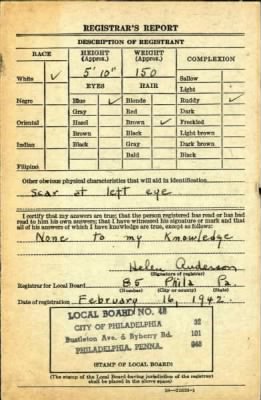 REGISTRAR'S REPORT
DESCRIPTION OF REGISTRANT
RACE HEIGHT (Approx.) WEIGHT (Approx.) COMPLEXION
5' 10" 150
White ✓ Sallow
EYES HAIR Light
Negro Blue ✓ Blonde Ruddy ✓
Gray Red Dark
Oriental Hazel Brown ✓ Freckled
Brown Black Light brown
Indian Black Gray Dark brown
Bald Black
Filipino
Other obvious physical characteristics that will aid in identification
Scar at left eye
I certify that my answers are true; that the person registered has read or has had
read to him his own answers; that I have witnessed his signature or mark and that
all of his answers of which I have knowledge are true, except as follows:
None to my Knowledge
Helen Anderson
(Signature of registrar)
Registrar for Local Board 85 Phila Pa.
(Number) (City or county) (State)
Date of registration February 16, 1942.
LOCAL BOARD NO. 48
CITY OF PHILADELPHIA 32
Bustleton Ave. & Byberry Rd. 101
PHILADELPHIA, PENNA. 048
(STAMP OF LOCAL BOARD)
(The stamp of the Local Board having jurisdiction of the registrant
shall be placed in the above space)